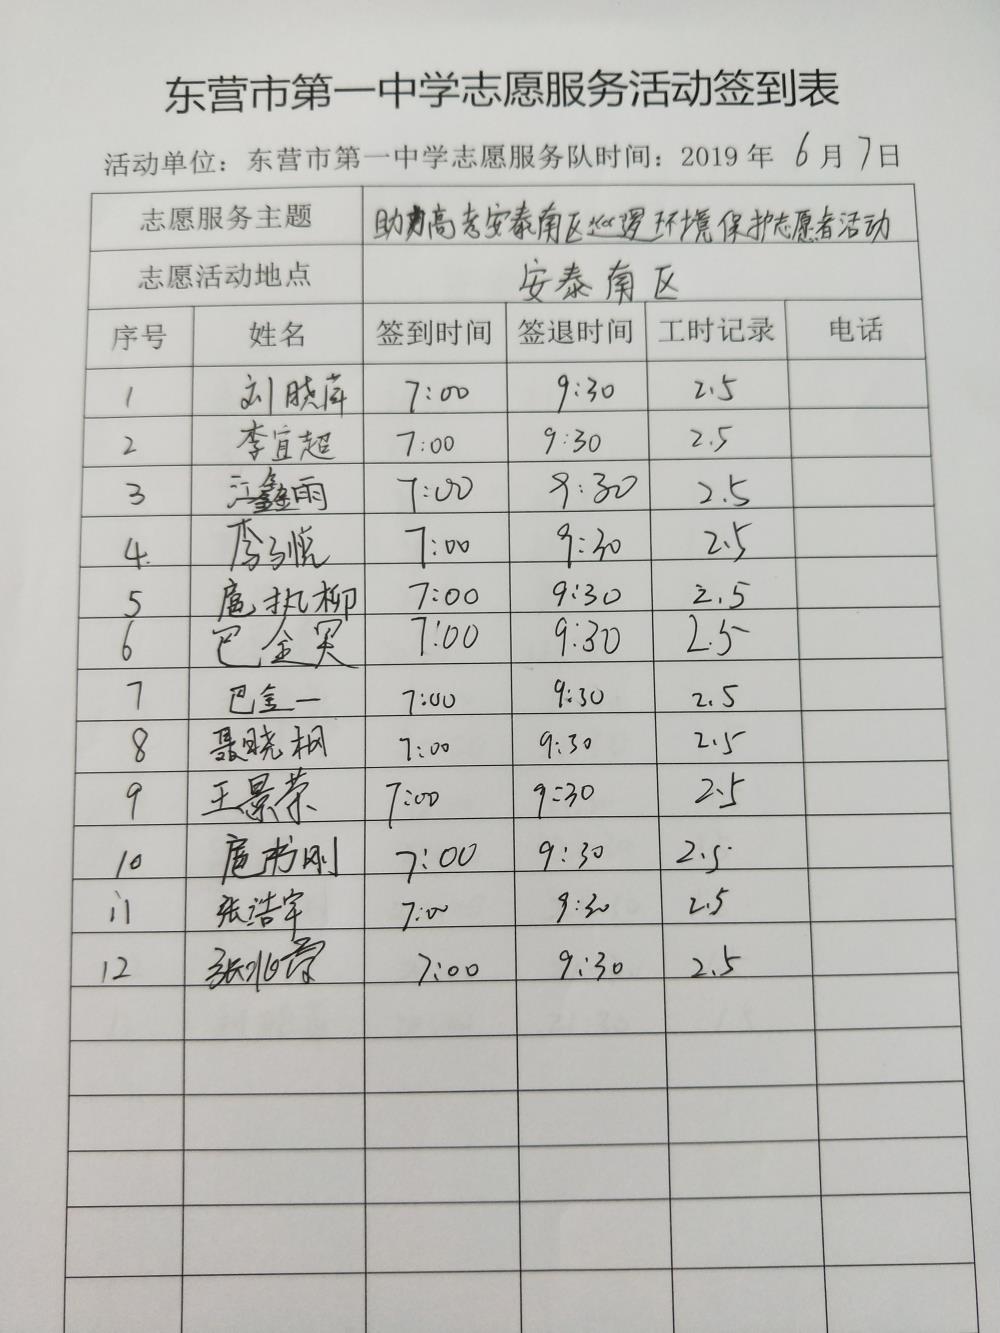 东营市第一中学志愿服务活动签到表
活动单位：东营市第一中学志愿服务队时间：2019年 6月7日
志愿服务主题 助力高考安泰南区巡逻环境保护志愿者活动
志愿活动地点 安泰南区
序号 姓名 签到时间 签退时间 工时记录 电话
1 刘晓 7:00 9:30 2.5
2 李宜超 7:00 9:30 2.5
3 江鑫雨 7:00 9:30 2.5
4. 李子悦 7:00 9:30 2.5
5 扈执柳 7:00 9:30 2.5
6 巴金 7:00 9:30 2.5
7 巴金一 7:00 9:30 2.5
8 聂晓枫 7:00 9:30 2.5
9 王景荣 7:00 9:30 2.5
10 扈书刚 7:00 9:30 2.5
11 张浩宇 7:00 9:30 2.5
12 张 7:00 9:30 2.5